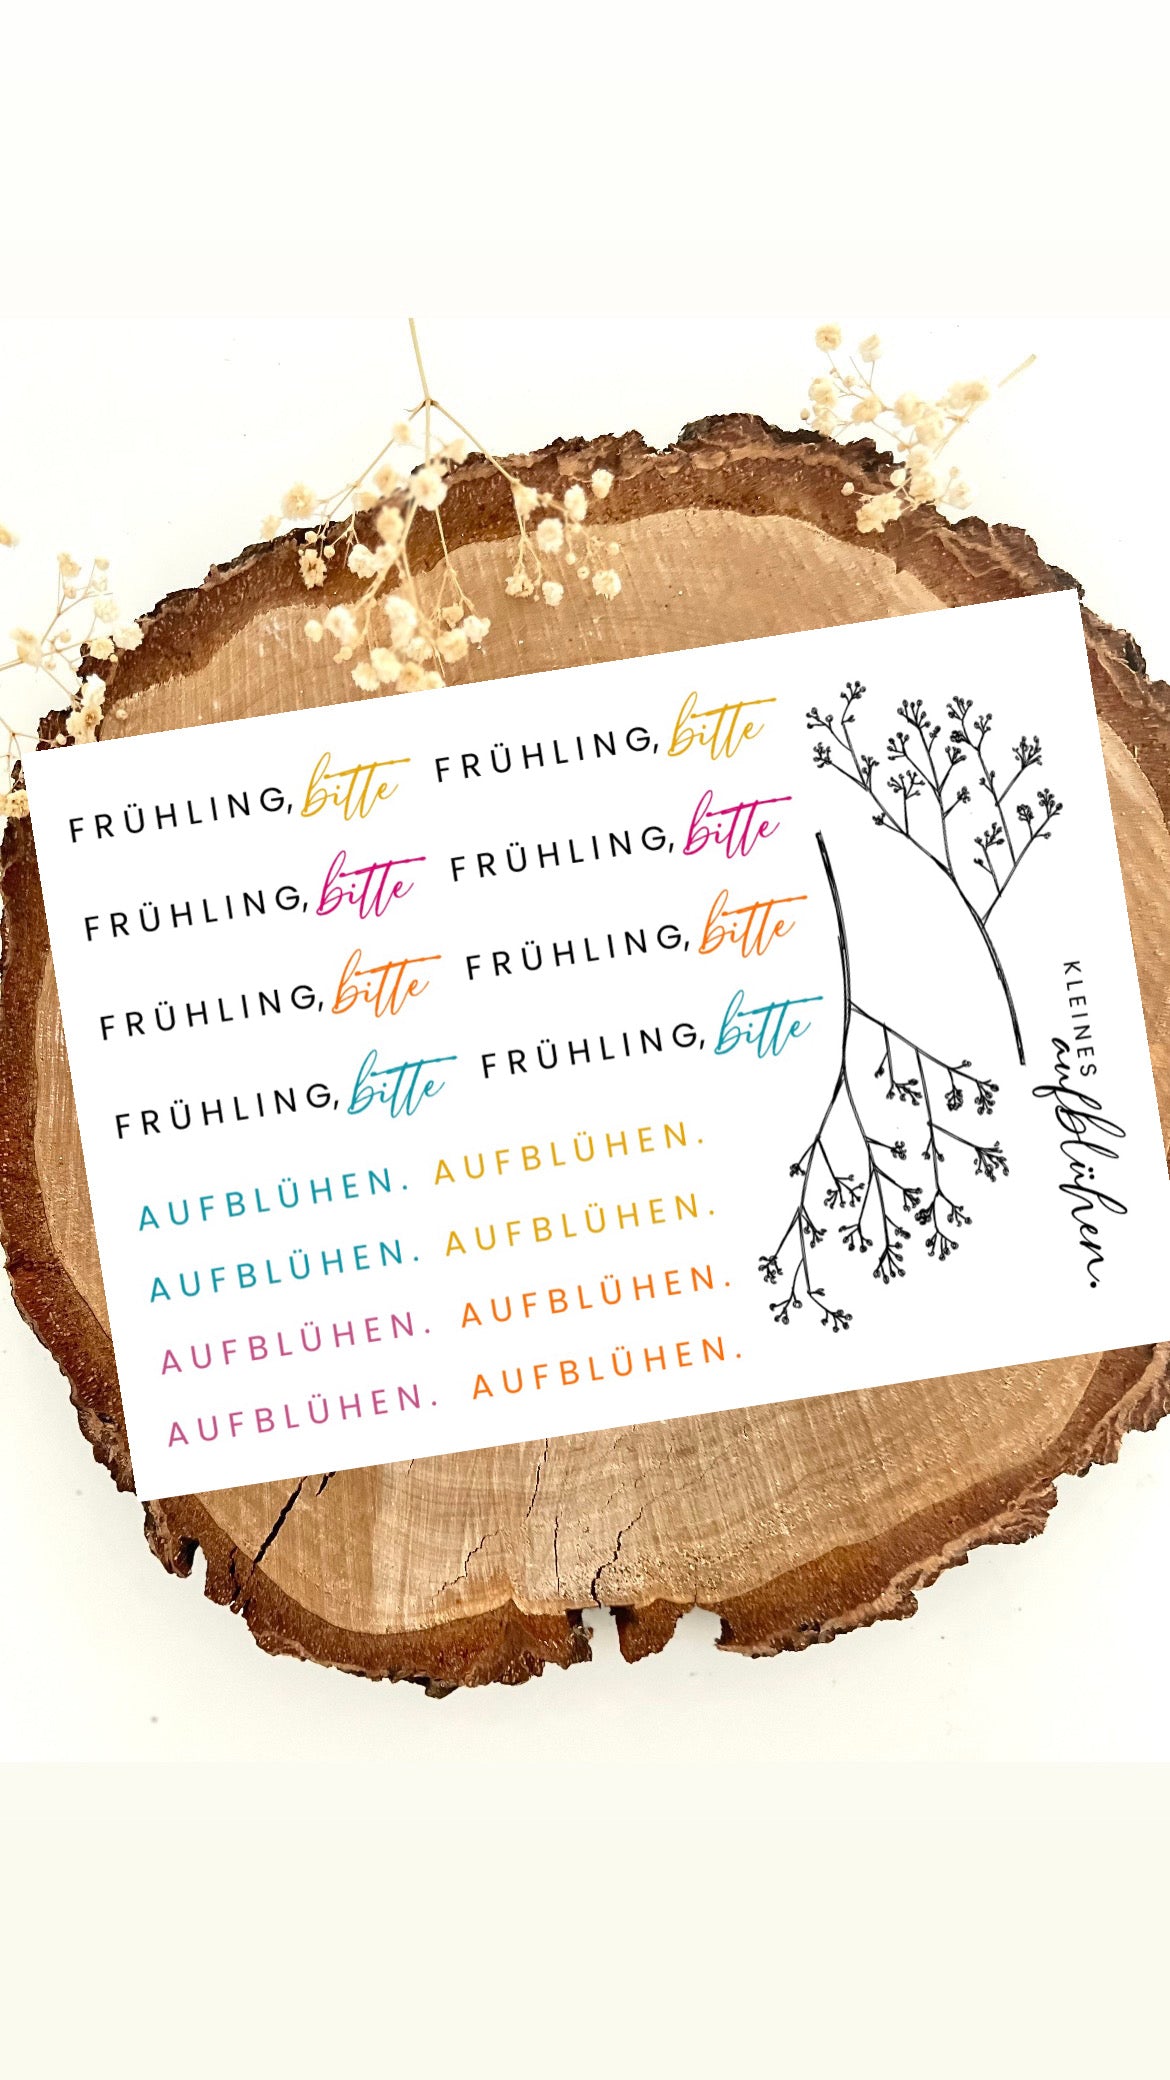 FRÜHLING, bitte FRÜHLING, bitte
FRÜHLING, bitte FRÜHLING, bitte
FRÜHLING, bitte FRÜHLING, bitte
FRÜHLING, bitte FRÜHLING, bitte
AUFBLÜHEN. AUFBLÜHEN.
AUFBLÜHEN. AUFBLÜHEN.
AUFBLÜHEN. AUFBLÜHEN.
AUFBLÜHEN. AUFBLÜHEN.
KLEINES
aufblühen.